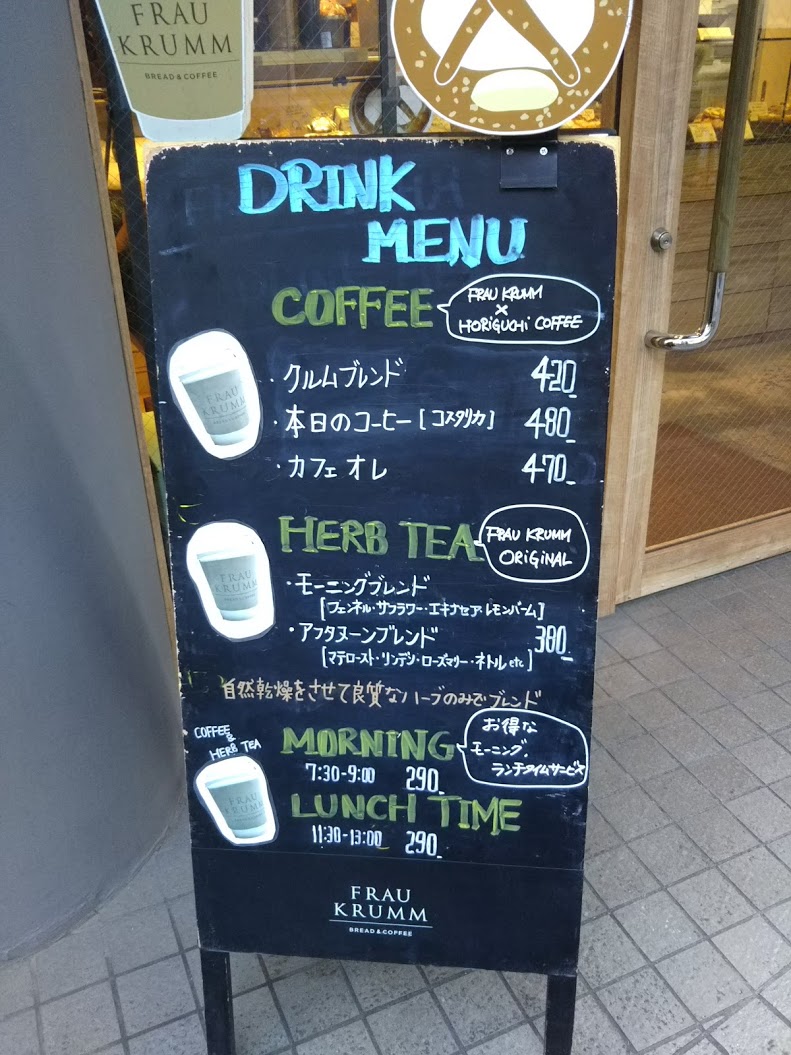 FRAU
KRUMM
BREAD & COFFEE
DRINK
MENU
COFFEE
FRAU KRUMM
×
HORIGUCHI COFFEE
・クルムブレンド 420_
・本日のコーヒー [コスタリカ] 480_
・カフェオレ 470_
HERB TEA
FRAU KRUMM
ORIGINAL
・モーニングブレンド
[フェンネル・サフラワー・エキナセア・レモンバーム]
・アフタヌーンブレンド 380_
[マテロースト・リンデン・ローズマリー・ネトル etc]
自然乾燥をさせて良質なハーブのみでブレンド
COFFEE
&
HERB TEA
MORNING
お得な
モーニング.
ランチタイムサービス
7:30-9:00 290_
LUNCH TIME
11:30-13:00 290_
FRAU
KRUMM
BREAD & COFFEE